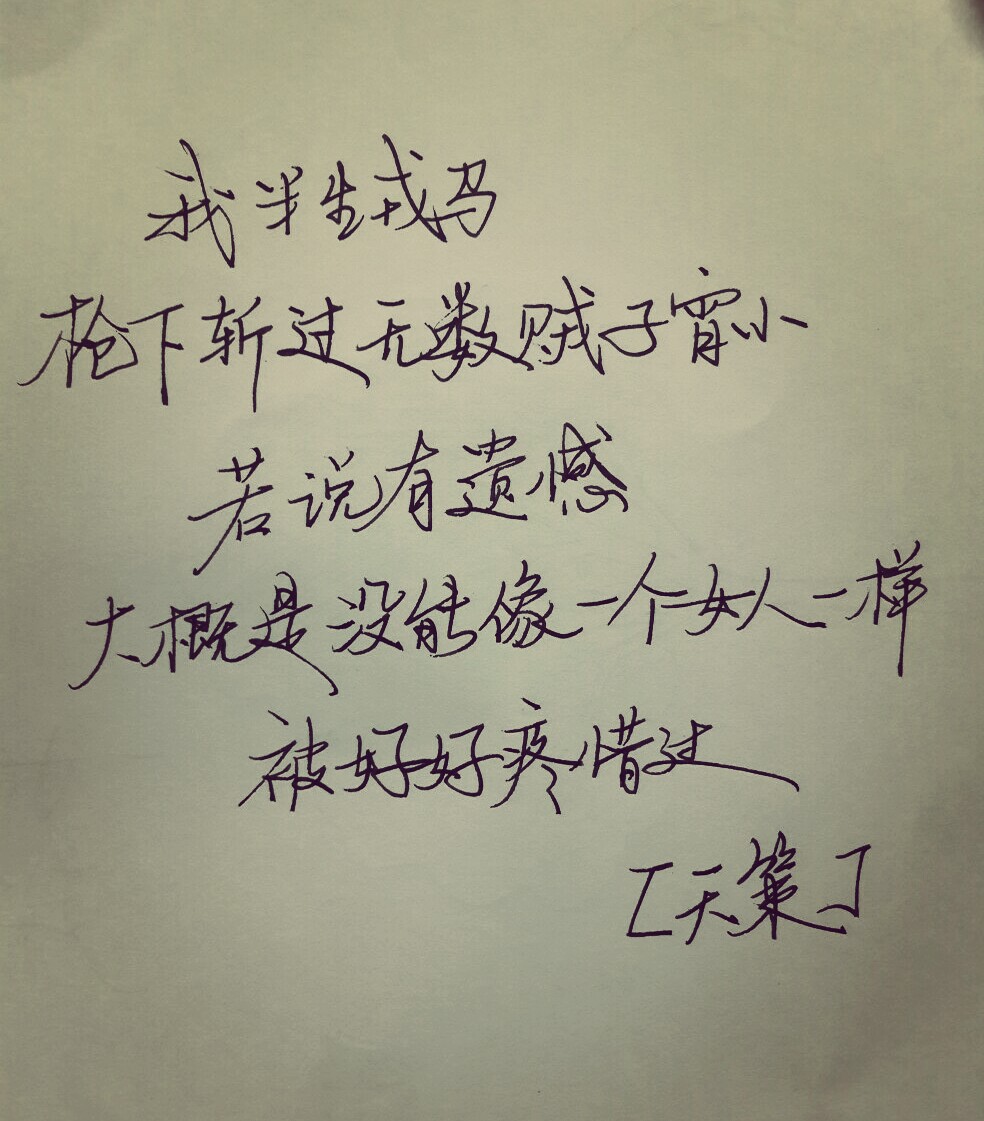 我半生戎马
枪下斩过无数贼子宵小
若说有遗憾
大概是没能像一个女人一样
被好好疼惜过
[天策]